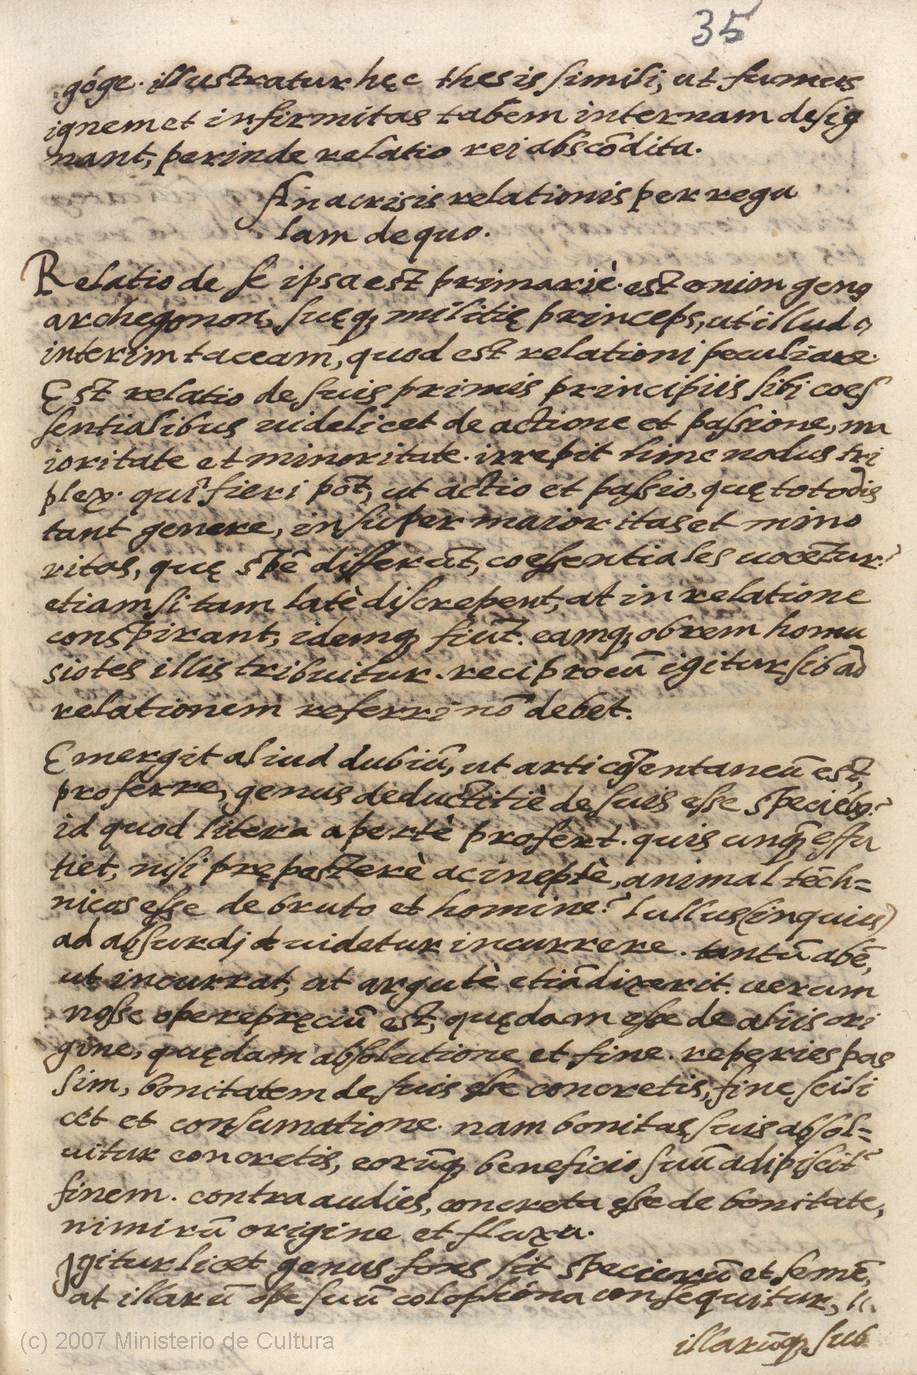 35
góge. illustratur hęc thesis simili, ut fumus
ignem et infirmitas tabem internam desig
nant, perinde relatio rei abscõdita.
Anacrisis relationis per regu
lam de quo.
Relatio de se ipsa est primariè. est enim genꝰ
archégonon, suęq; militię princeps, ut illud
interim taceam, quod est relationi peculiare.
Est relatio de suis primis principiis sibi coes
sentialibus uidelicet de actione et passione, ma
ioritate et minoritate. irrepit hinc nodus tri
plex. quî fieri põt, ut actio et passio, quę
tant genere, insuper maioritas et mino
ritas, quę spẽ differũt, coessentiales uocẽtur?
etiamsi tam latè discrepent, at in relatione
conspirant, idemq; fiũt. eamq; ob rem homu
siotes illis tribuitur. reciprocũ igitur, sib ad
relationem referri nõ debet.
Emergit aliud dubiũ, ut arti cõsentaneũ est,
proferre, genus deductitiè de suis esse speciebꝰ?
id quod litera apertè profert. quis unq̃ effu
tiet, nisi pręposterè ac ineptè, animal tẽch=
nicos esse de bruto et homine? Lullus (inquies)
ad absurdj uidetur incurrere. tantũ abẽ,
ut incurrat, ut argutè etiã dixerit. uerum
nosse operepręciũ est, quędam esse de aliis ori
gine, quędam absolutione et fine. reperies pas
sim, bonitatem de suis esse concretis, fine scili
cẽt et consumatione. nam bonitas suis absol=
uitur concretis, eorũq; beneficio suũ adipiscit᷑
finem. contra audies, concreta esse de bonitate,
nimirũ origine et fluxu.
Igitur licet genus fons sit specierũ et semẽ,
at illarũ ope suũ colophõna consequitur,
illarũq; sub
(c) 2007 Ministerio de Cultura